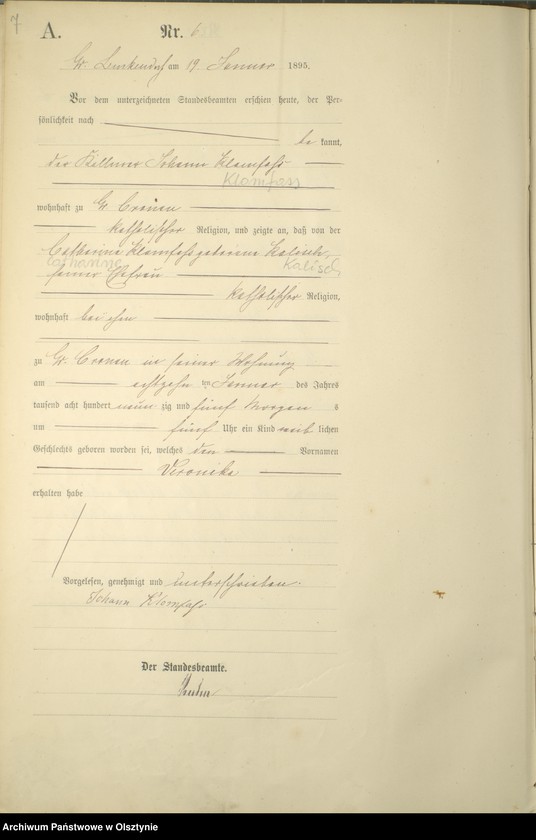 7
A. Nr. 6
Gr. am 19 Januar 1895.
Vor dem unterzeichneten Standesbeamten erschien heute, der Per-
sönlichkeit nach
be kannt,
der Johann Klomfass
Klomfass
wohnhaft zu Gr. Cronau
katholischer Religion, und zeigte an, daß von der
Catharina Klomfass geborene Kalisch,
Catharine Kalisch
seiner Ehefrau
katholischer Religion,
wohnhaft bei ihm
zu Gr. Cronau in seiner Wohnung
am achtzehn ten Januar des Jahres
tausend acht hundert neun zig und fünf Morgen s
um fünf Uhr ein Kind weib lichen
Geschlechts geboren worden sei, welches den Vornamen
Veronika
erhalten habe
Vorgelesen, genehmigt und unterschrieben.
Johann Klomfass
Der Standesbeamte.
Archiwum Państwowe w Olsztynie